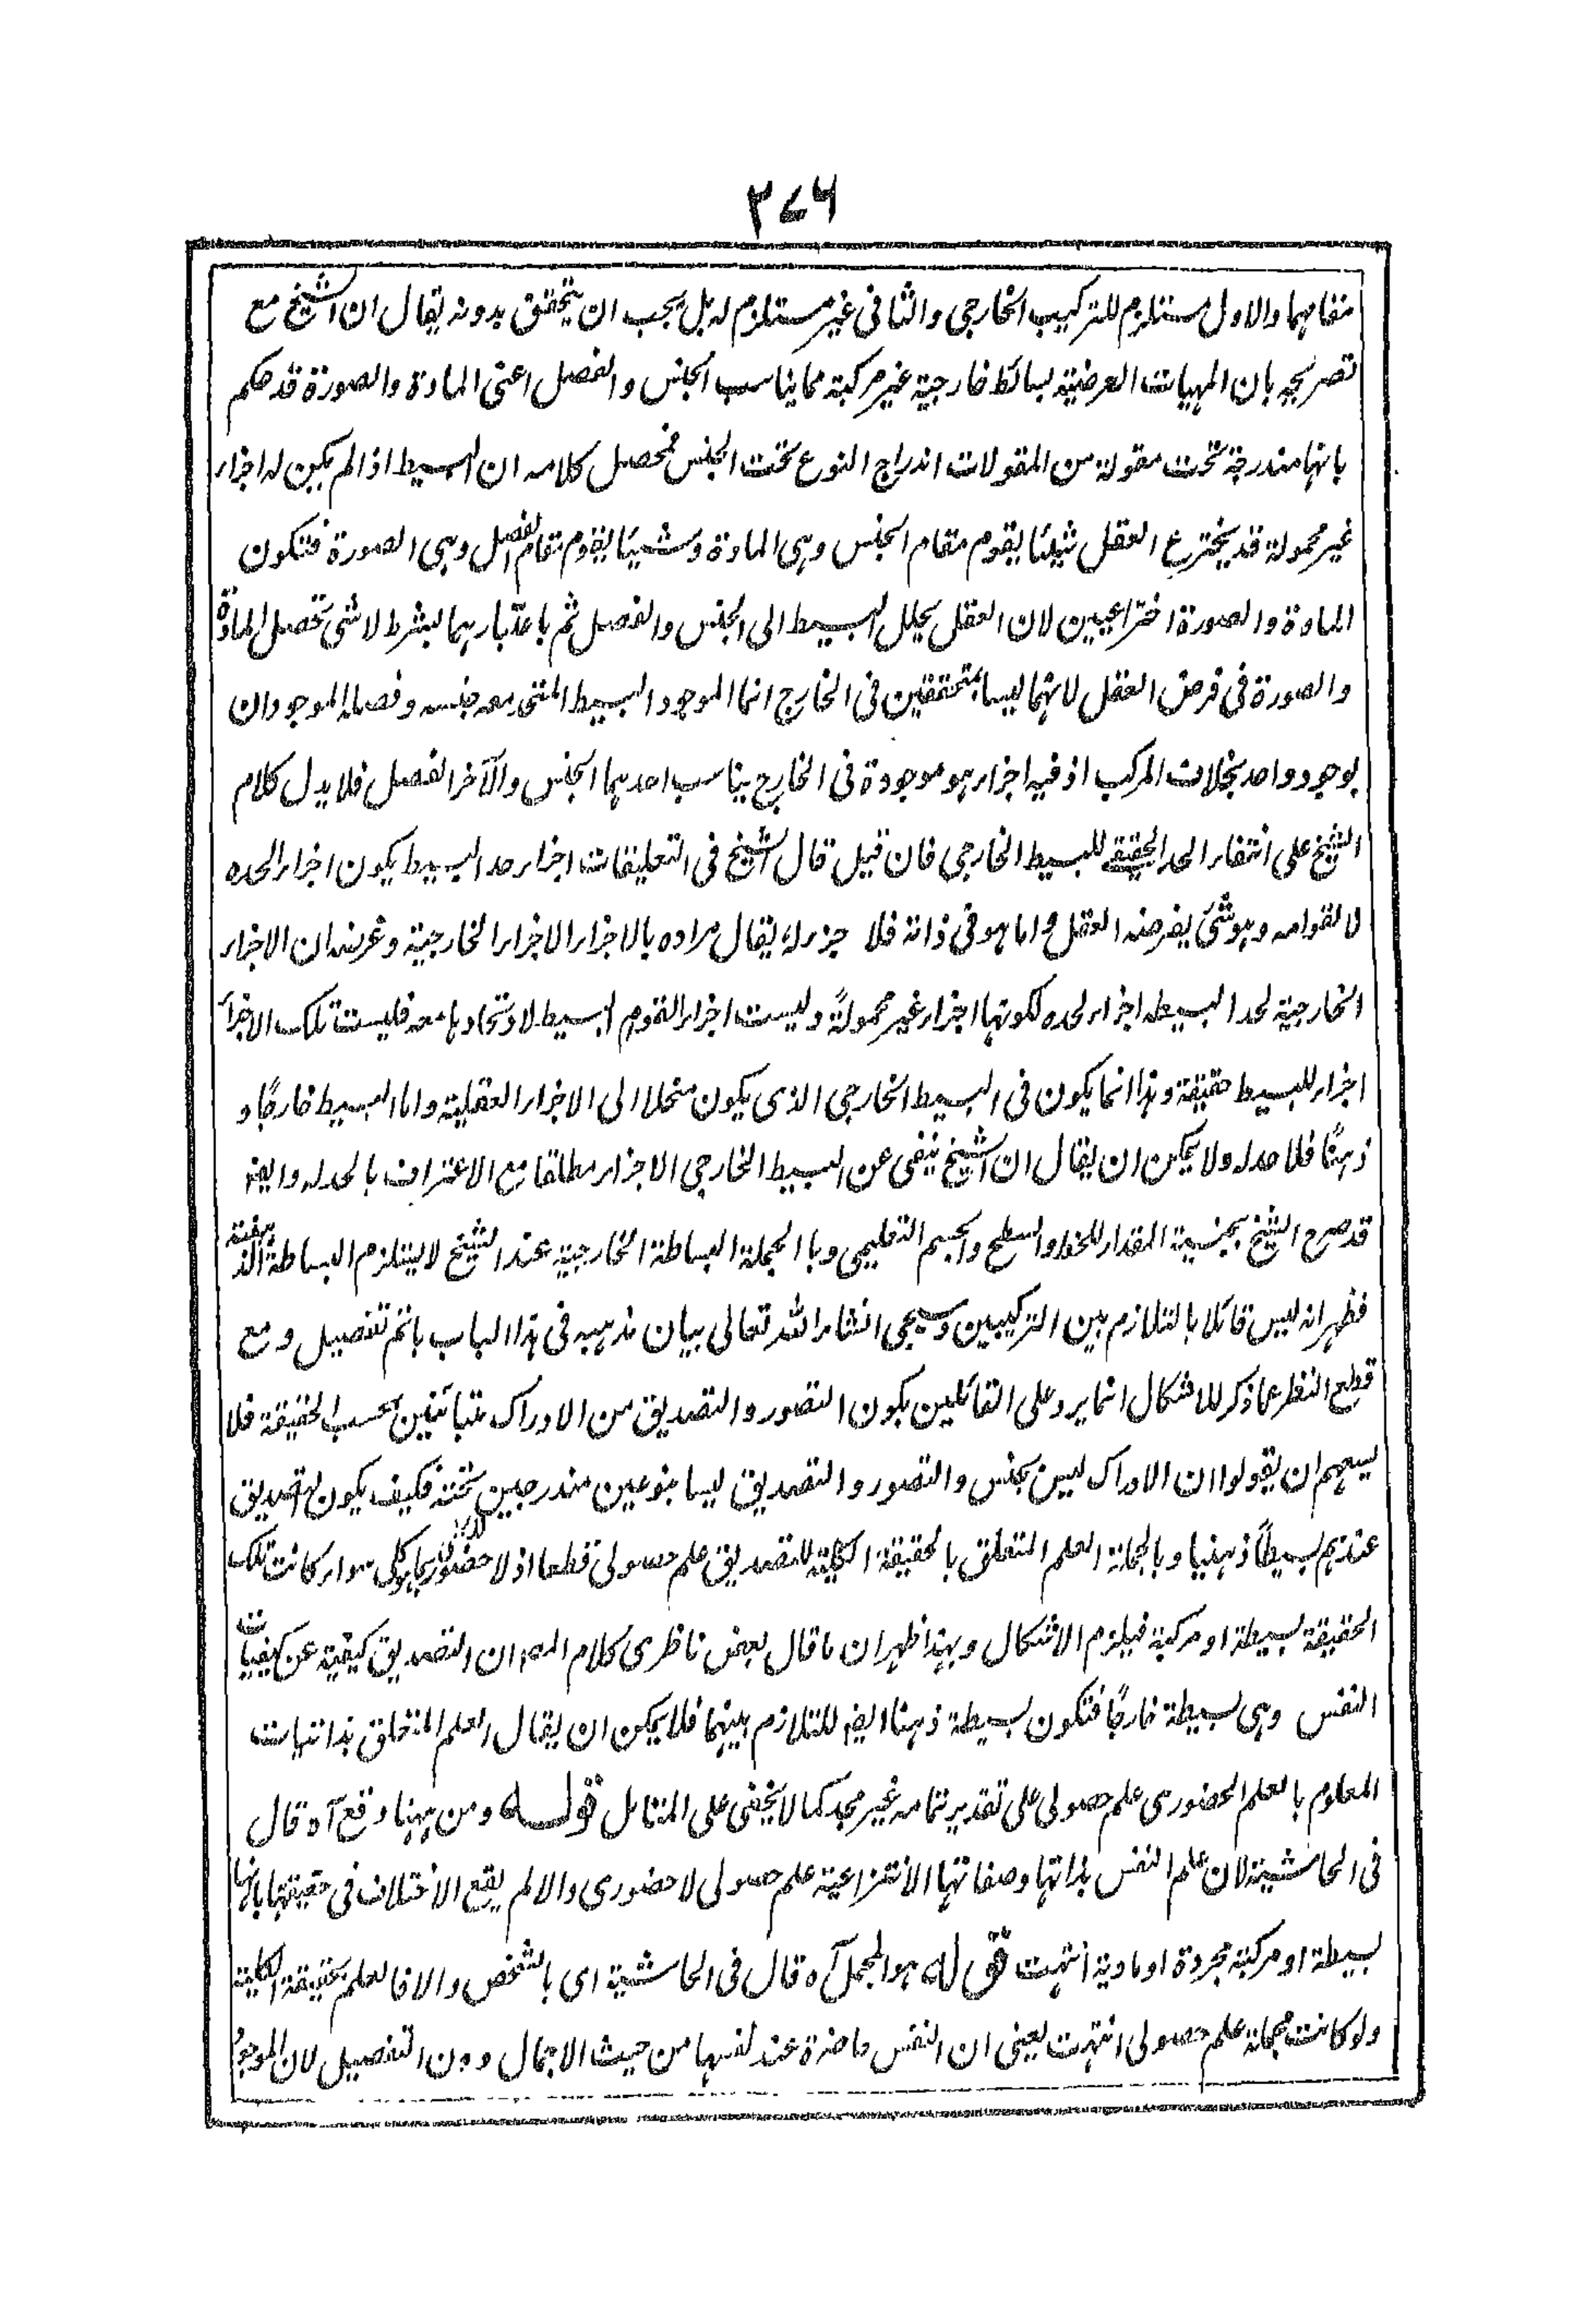 ٢٧٦
مقامهما والاول مستلزم للتركيب الخارجى والثانى غير مستلزم له بل يجب ان يتحقق بدونه يقال ان الشيخ مع
تصريحه بان المهيات العرضية بسائط خارجية غير مركبة مما يناسب الجنس والفصل اعنى المادة والصورة قد حكم
بانها مندرجة تحت مقولة من المقولات اندراج النوع تحت الجنس فمحصل كلامه ان البسيط اذا لم يكن له اجزاء
غير محمولة قد يخترع العقل شيئا يقوم مقام الجنس وهى المادة وشيئا يقوم مقام الفصل وهى الصورة فتكون
المادة والصورة اختراعيين لان العقل يحلل البسيط الى الجنس والفصل ثم باعتبارهما بشرط لا شئ تحصل المادة
والصورة فى فرض العقل لا انهما ليسا بمتحققين فى الخارج انما الموجود البسيط المتحد معه جنسه وفصله الموجودان
بوجود واحد بخلاف المركب اذ فيه اجزاء هو موجودة فى الخارج يناسب احدهما الجنس والآخر الفصل فلا يدل كلام
الشيخ على انتفاء الحد الحقيقى للبسيط الخارجى فان قيل قال الشيخ فى التعليقات اجزاء حد البسيط يكون اجزاء لحده
لا لقوامه وهو شئ يفرضه العقل واما هو فى ذاته فلا جزء له يقال مراده بالاجزاء الاجزاء الخارجية وغرضه ان الاجزاء
الخارجية لحد البسيط اجزاء لحده لكونها اجزاء غير محمولة وليست اجزاء لتقوم البسيط لاتحادها معه فليست تلك الاجزاء
اجزاء للبسيط حقيقة وهذا انما يكون فى البسيط الخارجى الذى يكون منحلا الى الاجزاء العقلية واما البسيط خارجًا و
ذهنًا فلا حد له ولا يمكن ان يقال ان الشيخ ينفى عن البسيط الخارجى الاجزاء مطلقا مع الاعتراف بالحد له وايضا
قد صرح الشيخ بجنسية المقدار للخط والسطح والجسم التعليمى وبا الجملة البساطة الخارجية عند الشيخ لا يستلزم البساطة الذهنية
فظهر انه ليس قائلا بالتلازم بين التركيبين وسيجى انشاء الله تعالى بيان مذهبه فى هذا الباب باتم تفصيل ومع
قطع النظر عما ذكر للاشكال انما يرد على القائلين بكون التصور والتصديق من الادراك متبائنين بحسب الحقيقة فلا
يسعهم ان يقولوا ان الادراك ليس بجنس والتصور والتصديق ليسا بنوعين مندرجين تحته فكيف يكون التصديق
عندهم بسيطًا ذهنيا وبالجملة العلم المتعلق بالحقيقة الكلية للتصديق علم حصولى قطعا اذ لا حضور للكلى بما هو كلى سواء كانت تلك
الحقيقة بسيطة او مركبة فيلزم الاشكال وبهذا ظهر ان ما قال بعض ناظرى كلام المص ان التصديق كيفية من كيفيات
النفس وهى بسيطة خارجًا فتكون بسيطة ذهنا ايضا للتلازم بينهما فلا يمكن ان يقال العلم المتعلق بذاتيات
المعلوم بالعلم الحضورى علم حصولى على تقدير تمامه غير مجد كما لا يخفى على المتامل قوله ومن ههنا وقع آه قال
فى الحاشية لان علم النفس بذاتها وصفاتها الانتزاعية علم حصولى لا حضورى والا لم يقع الاختلاف فى حقيقتها بانها
بسيطة او مركبة مجردة او مادية انتهت قوله هو المجمل آه قال فى الحاشية اى بالشخص والا فالعلم بحقيقة الكلية
ولو كانت مجملة علم حصولى انتهت يعنى ان النفس حاضرة عند نفسها من حيث الاجمال دون التفصيل لان الموجود